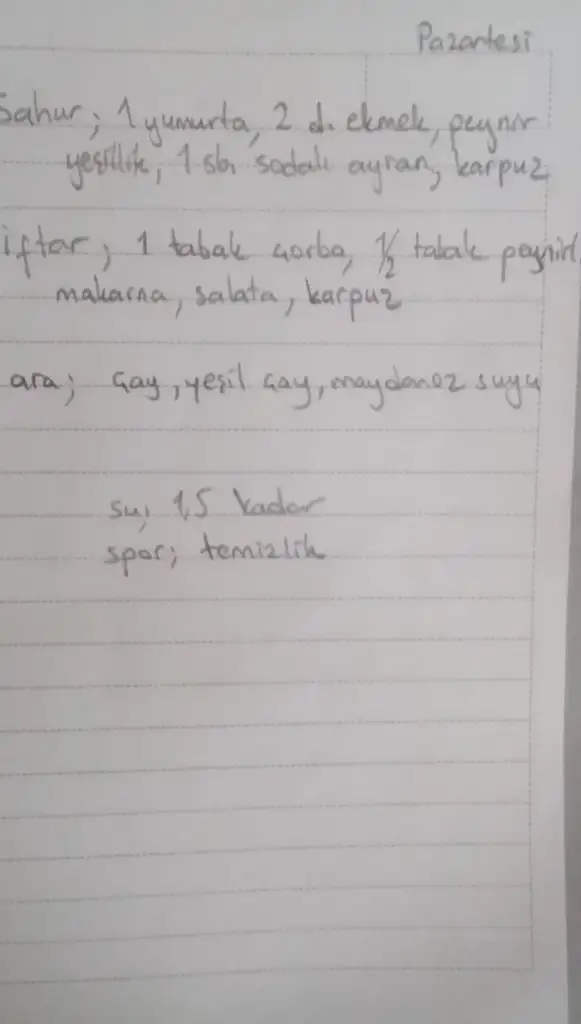 Pazartesi
Sahur; 1 yumurta, 2 d. ekmek, peynir
yeşillik, 1 sb. sodalı ayran, karpuz
iftar; 1 tabak çorba, 1/2 tabak peynirl
makarna, salata, karpuz
ara; çay, yeşil çay, maydanoz suyu
su; 1,5 kadar
spor; temizlik